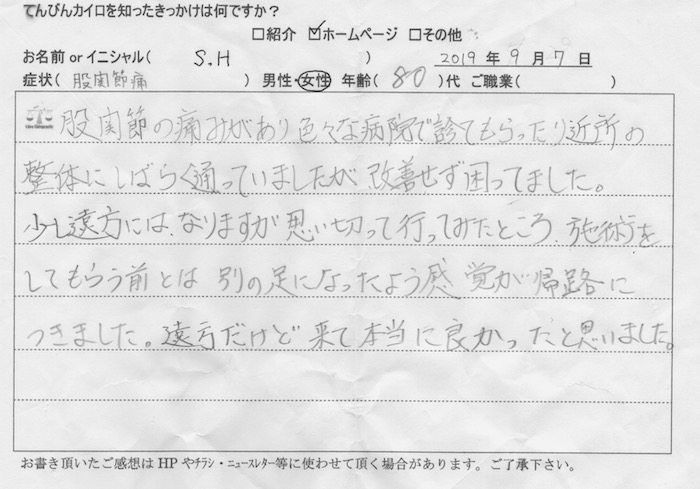 てんびんカイロを知ったきっかけは何ですか?
□紹介 ☑ホームページ □その他
お名前 or イニシャル( S.H ) 2019 年 9 月 7 日
症状( 股関節痛 ) 男性・女性 年齢( 80 )代 ご職業( )
股関節の痛みがあり色々な病院で診てもらったり近所の
整体にしばらく通っていましたが改善せず困ってました。
少し遠方には、なりますが思い切って行ってみたところ、施術を
してもらう前とは別の足になったよう感覚が帰路に
つきました。遠方だけど来て本当に良かったと思いました。
お書き頂いたご感想は HP やチラシ・ニュースレター等に使わせて頂く場合があります。ご了承下さい。